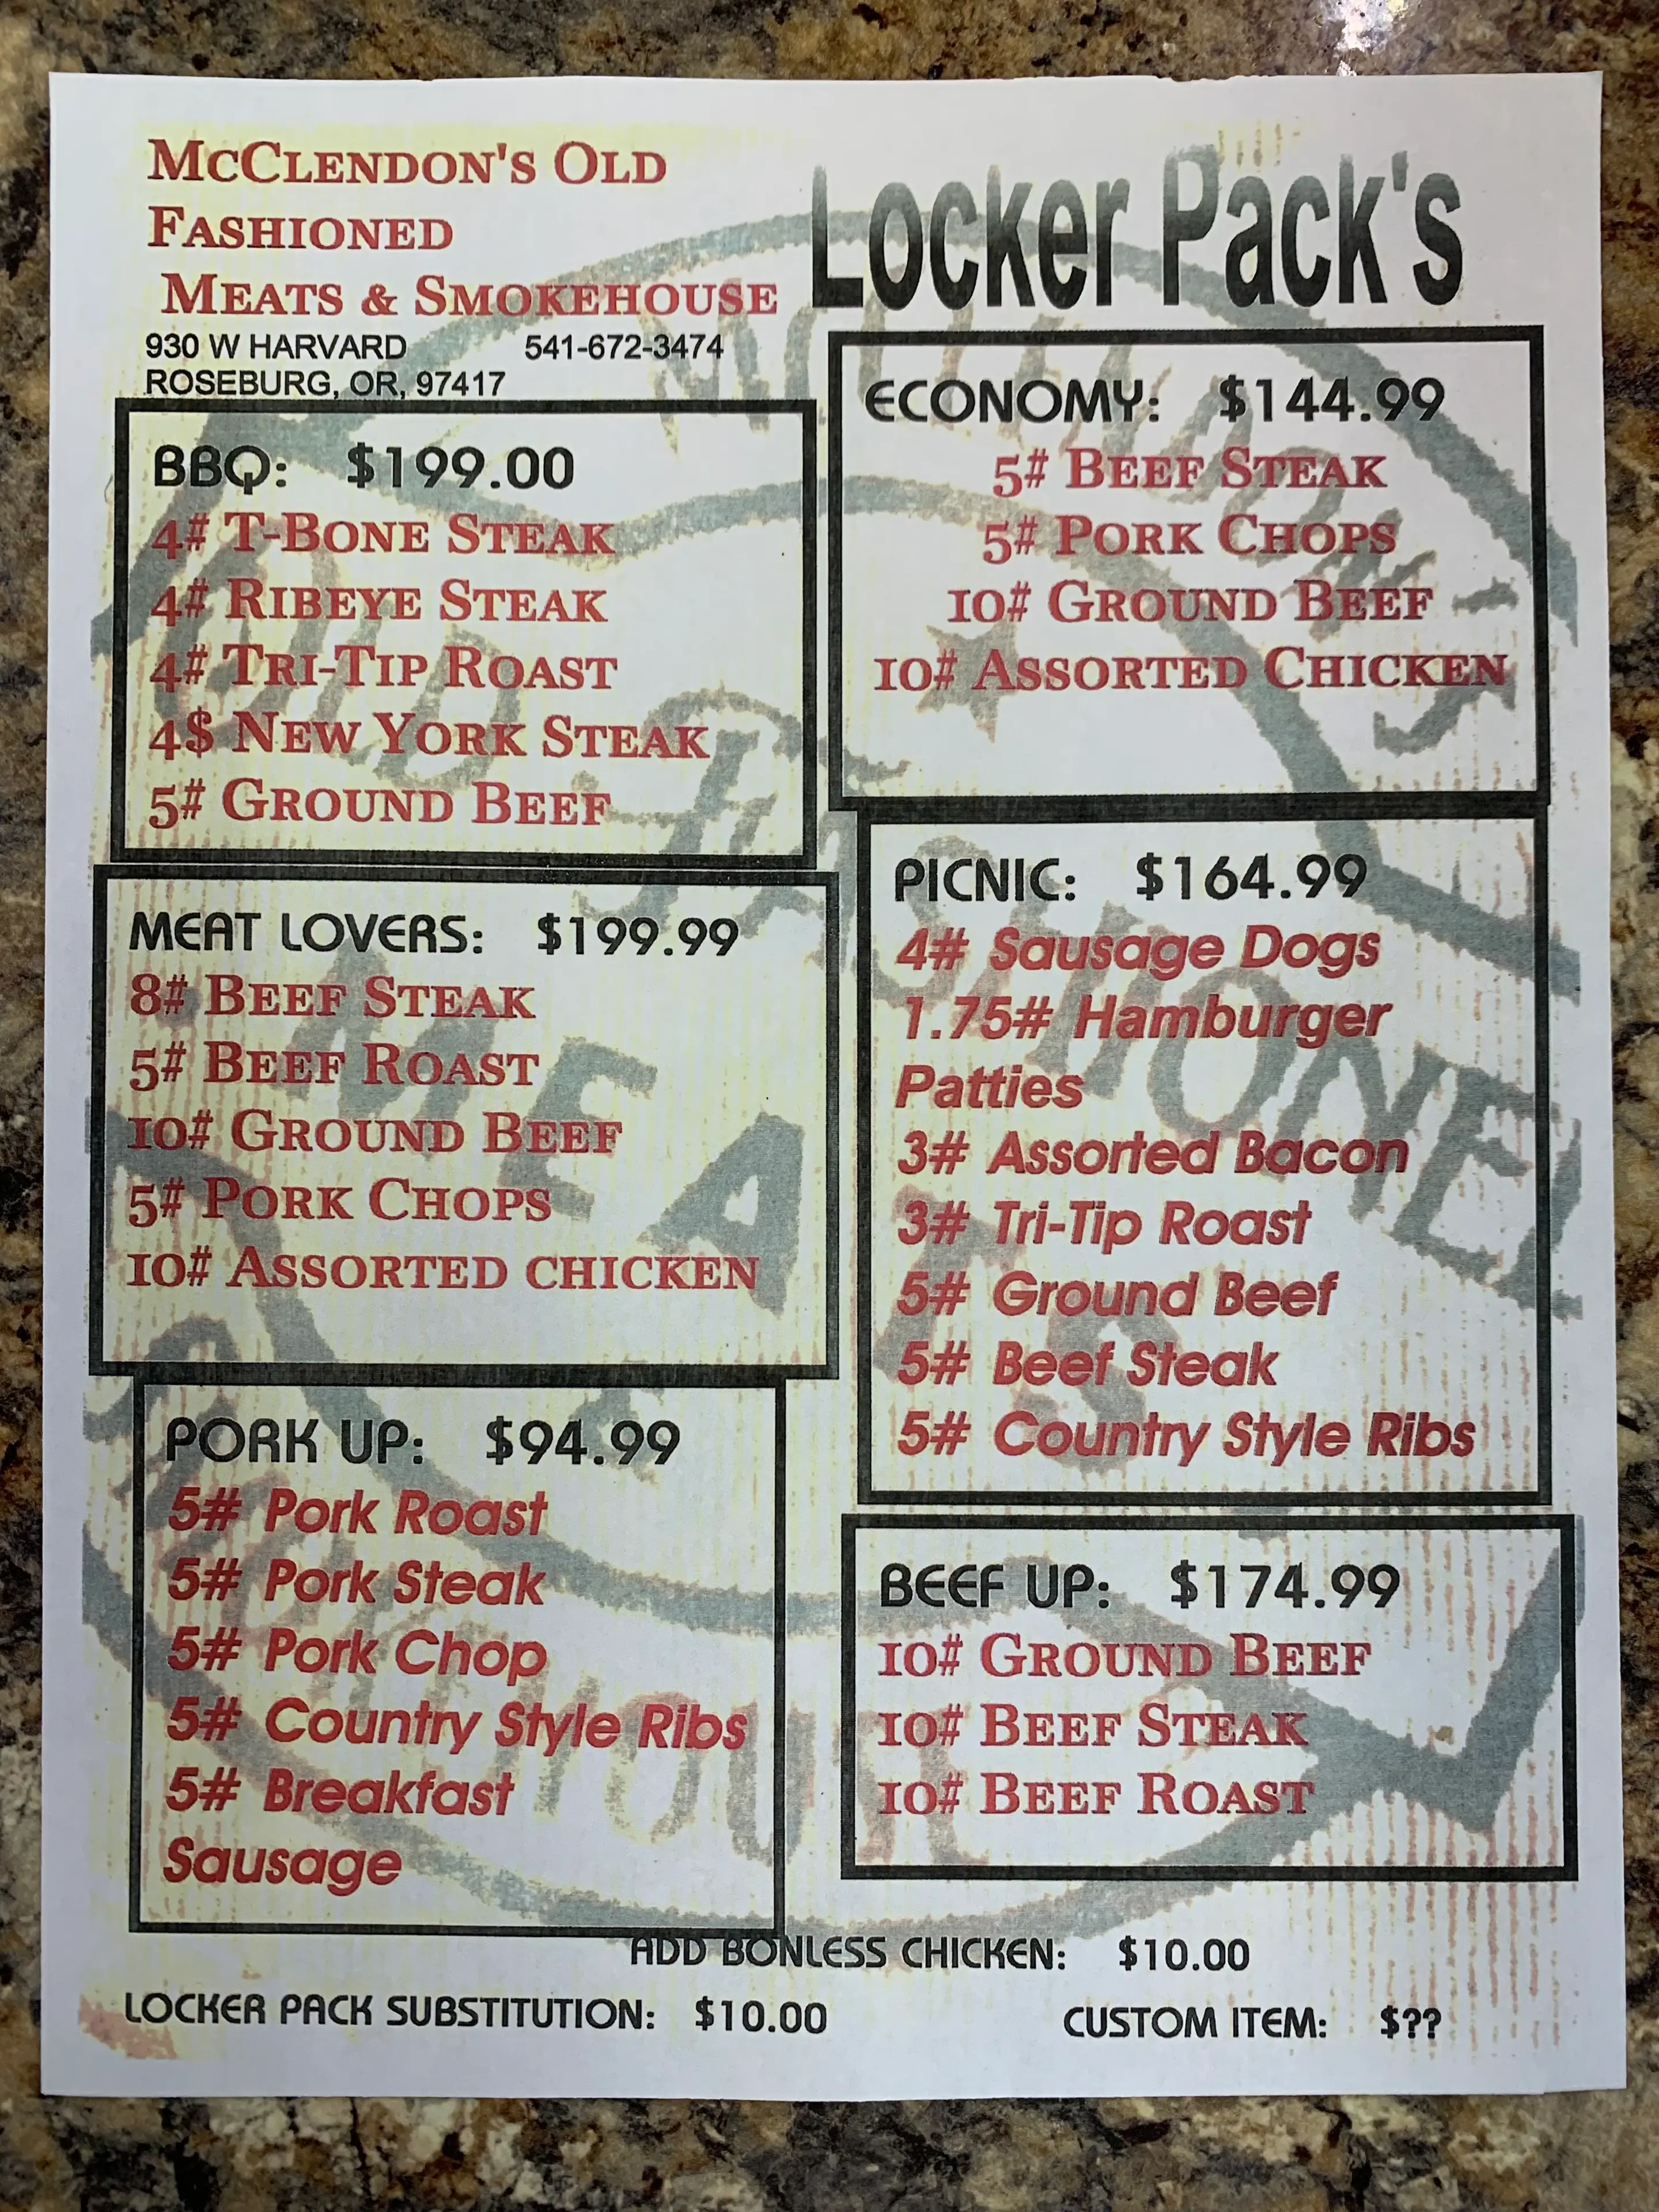 McClendon's Old
Fashioned
Meats & Smokehouse
930 W HARVARD 541-672-3474
ROSEBURG, OR, 97417
Locker Pack's
BBQ: $199.00
4# T-Bone Steak
4# Ribeye Steak
4# Tri-Tip Roast
4$ New York Steak
5# Ground Beef
MEAT LOVERS: $199.99
8# Beef Steak
5# Beef Roast
10# Ground Beef
5# Pork Chops
10# Assorted chicken
PORK UP: $94.99
5# Pork Roast
5# Pork Steak
5# Pork Chop
5# Country Style Ribs
5# Breakfast
Sausage
ECONOMY: $144.99
5# Beef Steak
5# Pork Chops
10# Ground Beef
10# Assorted Chicken
PICNIC: $164.99
4# Sausage Dogs
1.75# Hamburger
Patties
3# Assorted Bacon
3# Tri-Tip Roast
5# Ground Beef
5# Beef Steak
5# Country Style Ribs
BEEF UP: $174.99
10# Ground Beef
10# Beef Steak
10# Beef Roast
ADD BONLESS CHICKEN: $10.00
LOCKER PACK SUBSTITUTION: $10.00
CUSTOM ITEM: $??